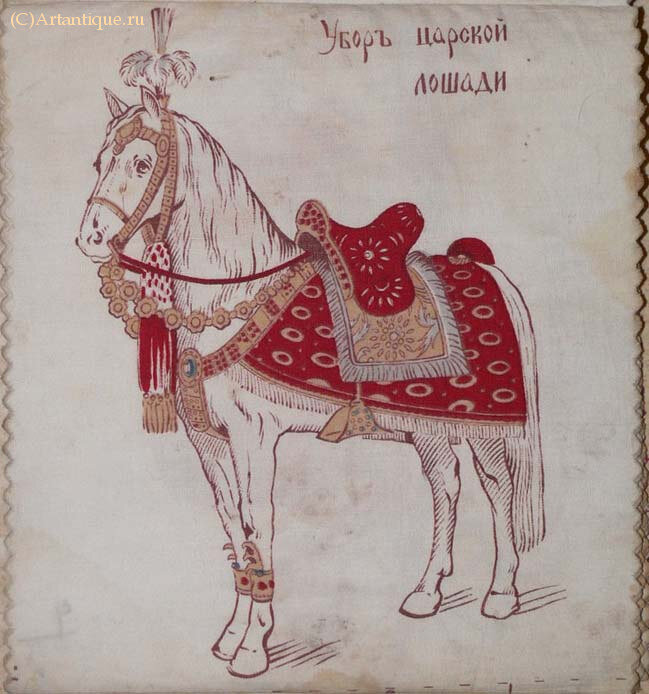 (C)Artantique.ru
Уборъ царской
лошади